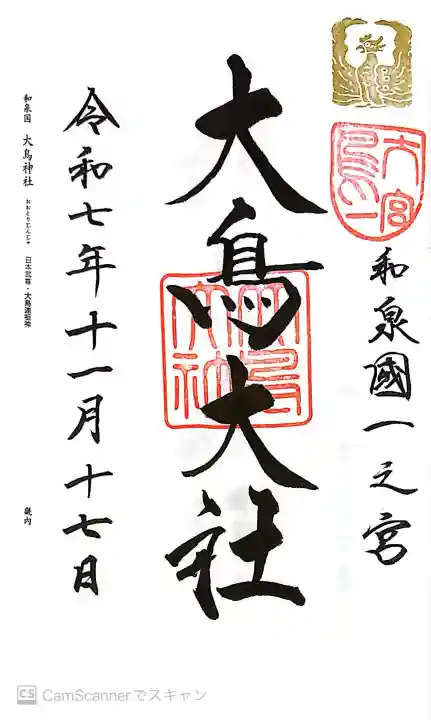 和泉國一之宮
大鳥一宮
大鳥大社
大鳥大社
令和七年十一月十七日
和泉国 大鳥神社 おおとりじんじゃ 日本武尊・大鳥連祖神
畿内
CS CamScannerでスキャン